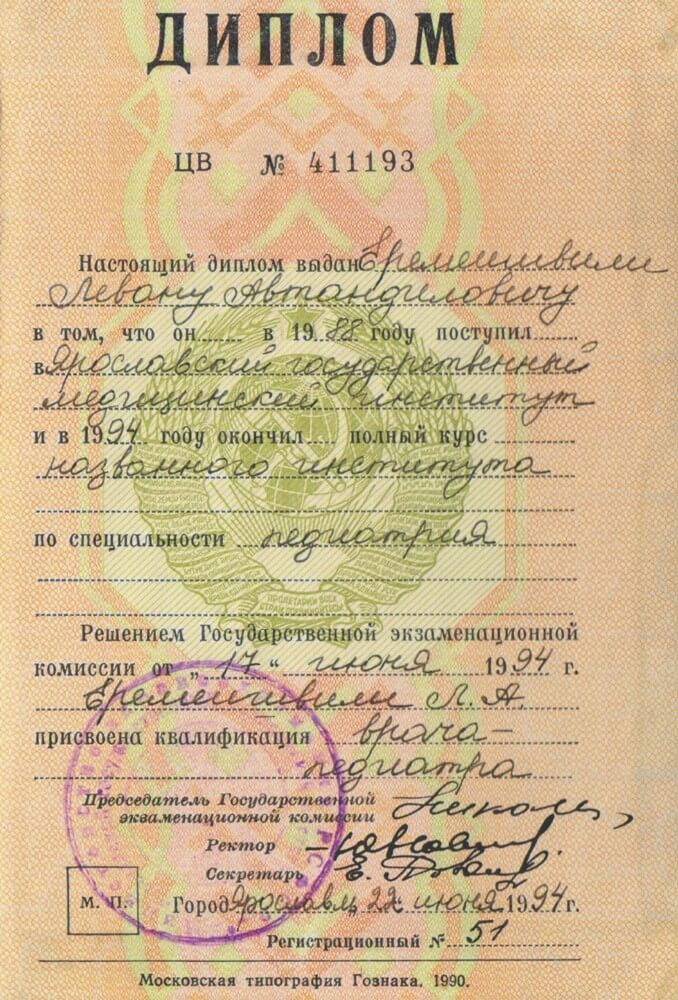 ДИПЛОМ
ЦВ № 411193
Настоящий диплом выдан Еремеишвили
Левану Автандиловичу
в том, что он в 1988 году поступил
в Ярославский государственный
медицинский институт
и в 1994 году окончил полный курс
названного института
по специальности педиатрия
Решением Государственной экзаменационной
комиссии от „17“ июня 1994 г.
Еремеишвили Л. А.
присвоена квалификация врача-
педиатра
Председатель Государственной
экзаменационной комиссии
Ректор
Секретарь
М. П. Город Ярославль, 22 июня 1994 г.
Регистрационный № 51
Московская типография Гознака. 1990.